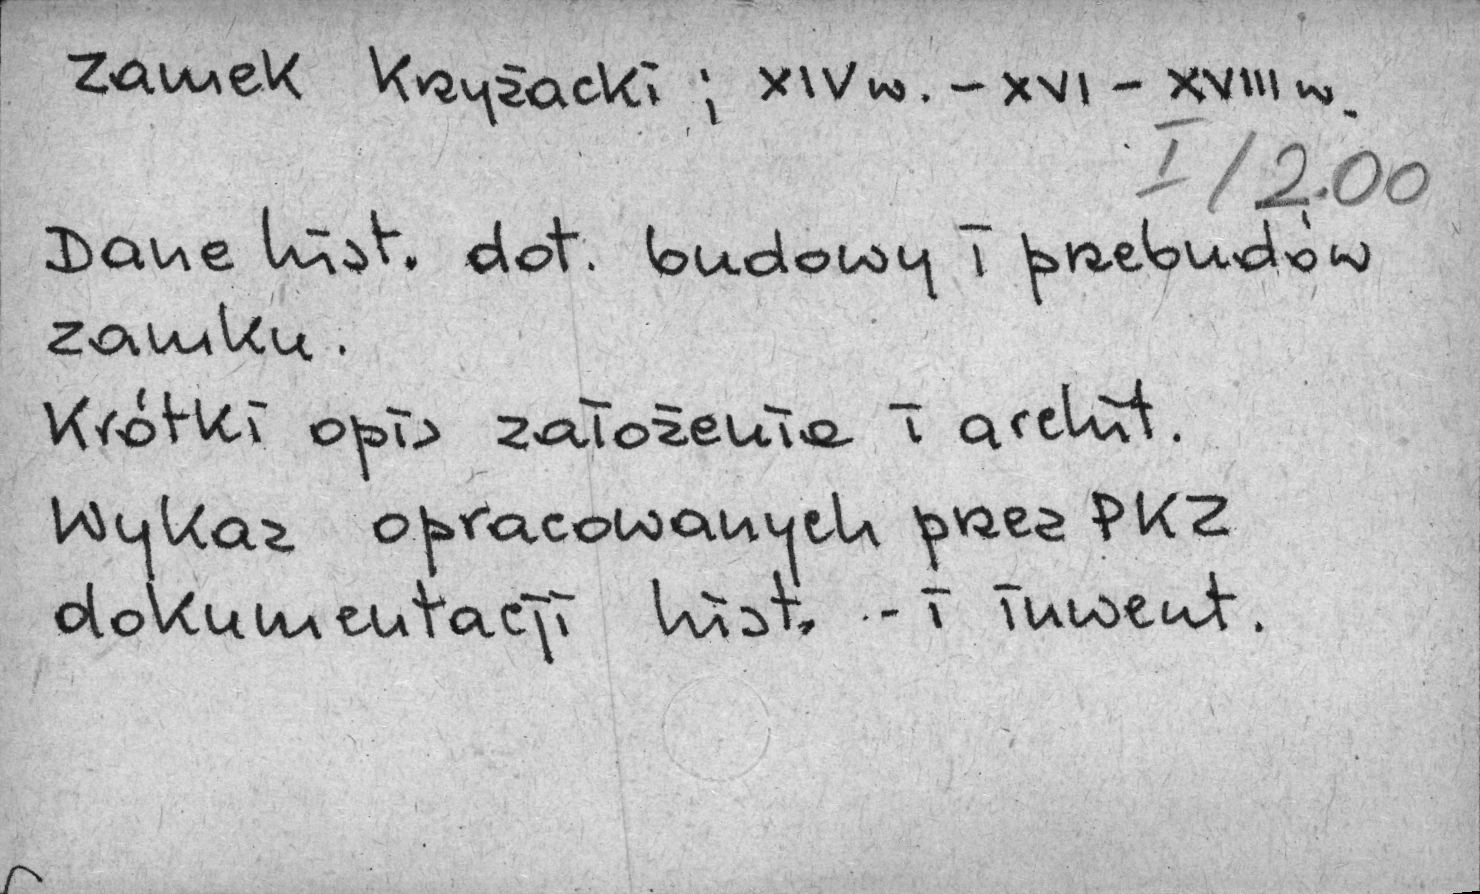 Zamek Krzyżacki; XIV w. - XVI - XVIII w.
I/2.00
Dane hist. dot. budowy i przebudów
zamku.
Krótki opis założenia i archit.
Wykaz opracowanych przez PKZ
dokumentacji hist. - i inwent.